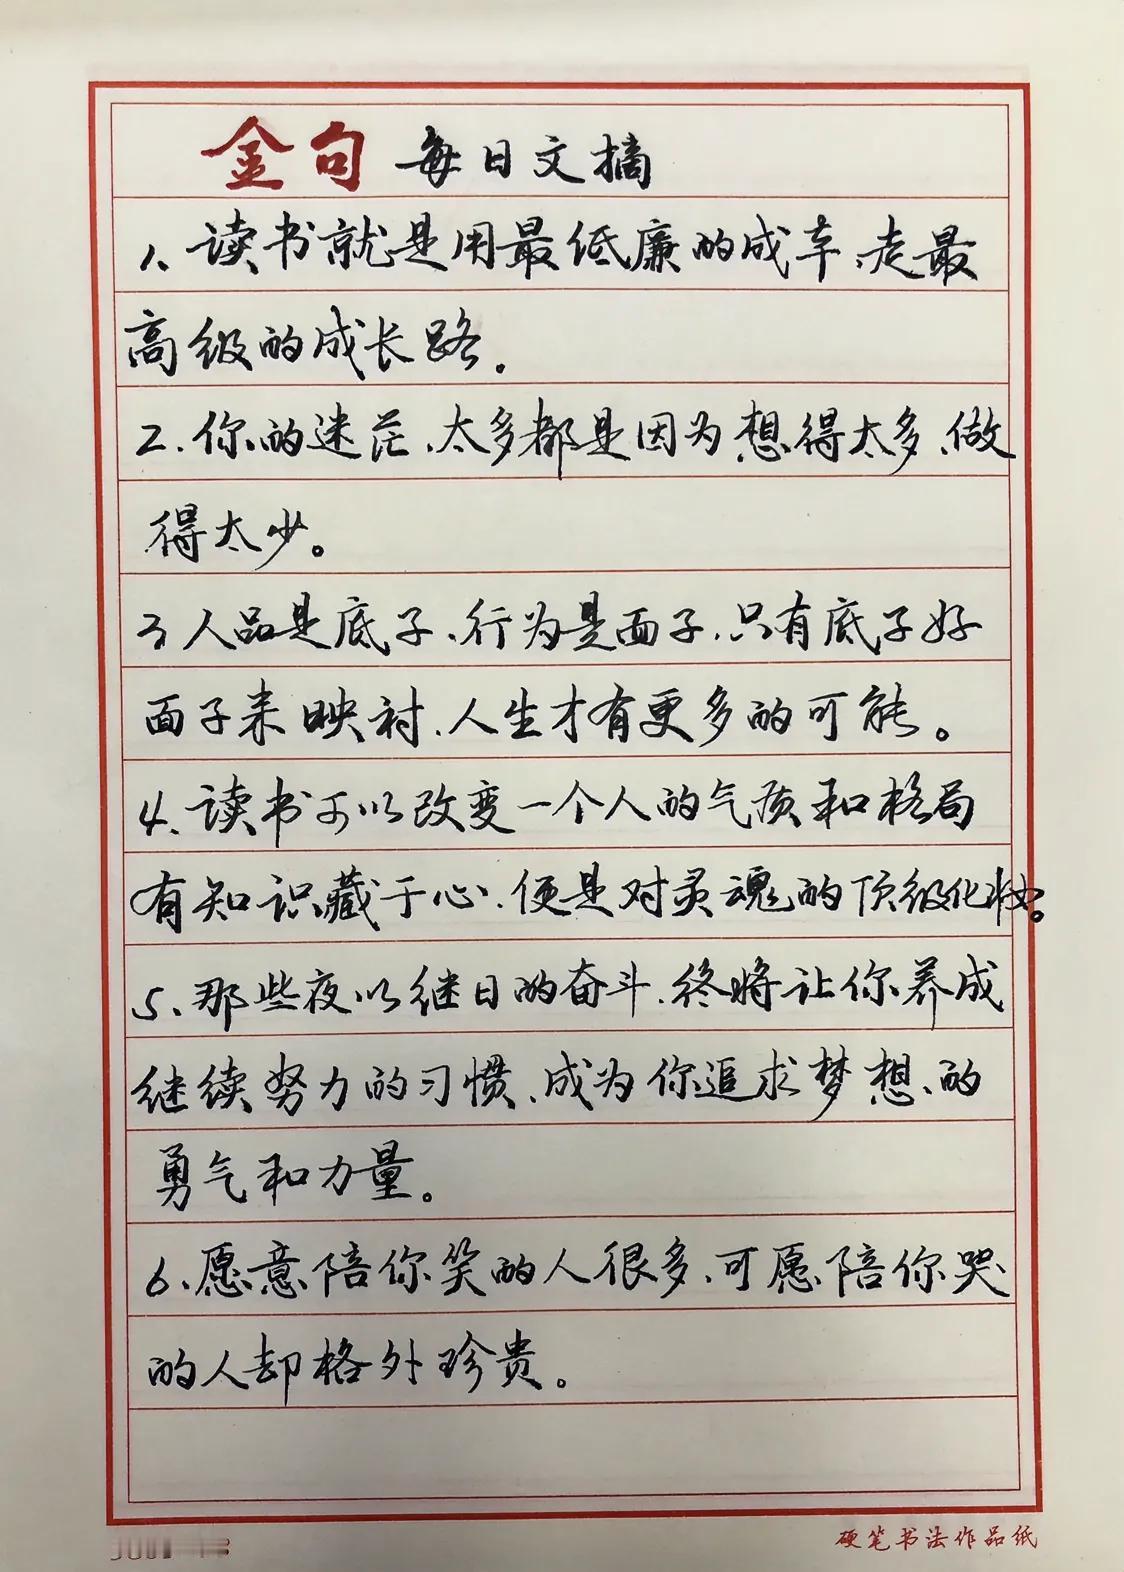 金句 每日文摘
1、读书就是用最低廉的成本、走最
高级的成长路。
2、你的迷茫、太多都是因为想得太多、做
得太少。
3 人品是底子、行为是面子、只有底子好
面子来映衬、人生才有更多的可能。
4、读书可以改变一个人的气质和格局
有知识藏于心、便是对灵魂的顶级化妆。
5、那些夜以继日的奋斗、终将让你养成
继续努力的习惯、成为你追求梦想、的
勇气和力量。
6、愿意陪你笑的人很多、可愿陪你哭
的人却格外珍贵。
硬笔书法作品纸